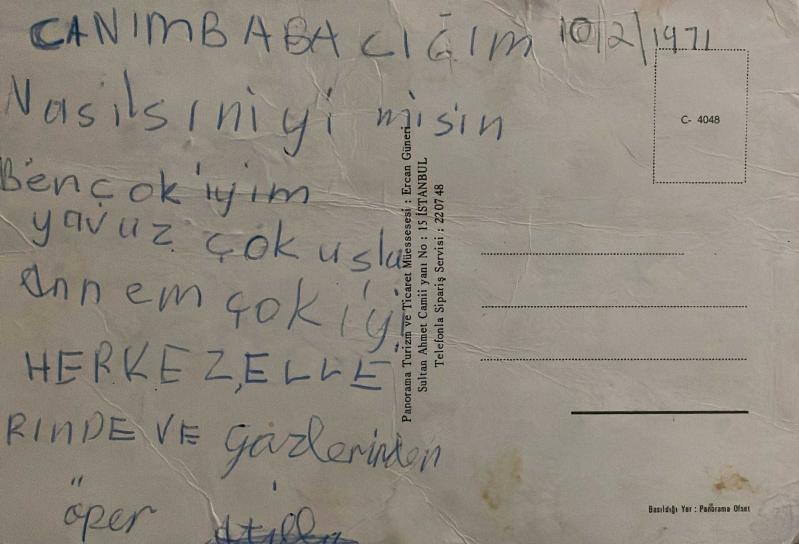 CANIMBABACIĞIM 10/2/1971
Nasılsıniyi misin
Bençokiyim
yavuz çok uslu
Annem çokiyi
HERKEZ,ELLE
RINDE VE gözlerinden
öper Atilla
Panorama Turizm ve Ticaret Müessesesi : Ercan Güneri
Sultan Ahmet Camii yanı No : 15 İSTANBUL
Telefonla Sipariş Servisi : 22 07 48
C- 4048
Basıldığı Yer : Panorama Ofset